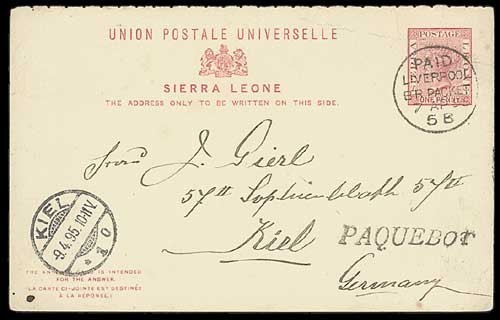 UNION POSTALE UNIVERSELLE
SIERRA LEONE
THE ADDRESS ONLY TO BE WRITTEN ON THIS SIDE.
POSTAGE
ONE PENNY
PAID
LIVERPOOL
BR. PACKET
7 AP 95
5B
Herrn J. Gierl
57II Sophienblatt 57II
Kiel
Germany
PAQUEBOT
KIEL
9.4.95.10-11V.
* 1 O
THE ANNEXED CARD IS INTENDED
FOR THE ANSWER.
(LA CARTE CI-JOINTE EST DESTINÉE
À LA RÉPONSE.)